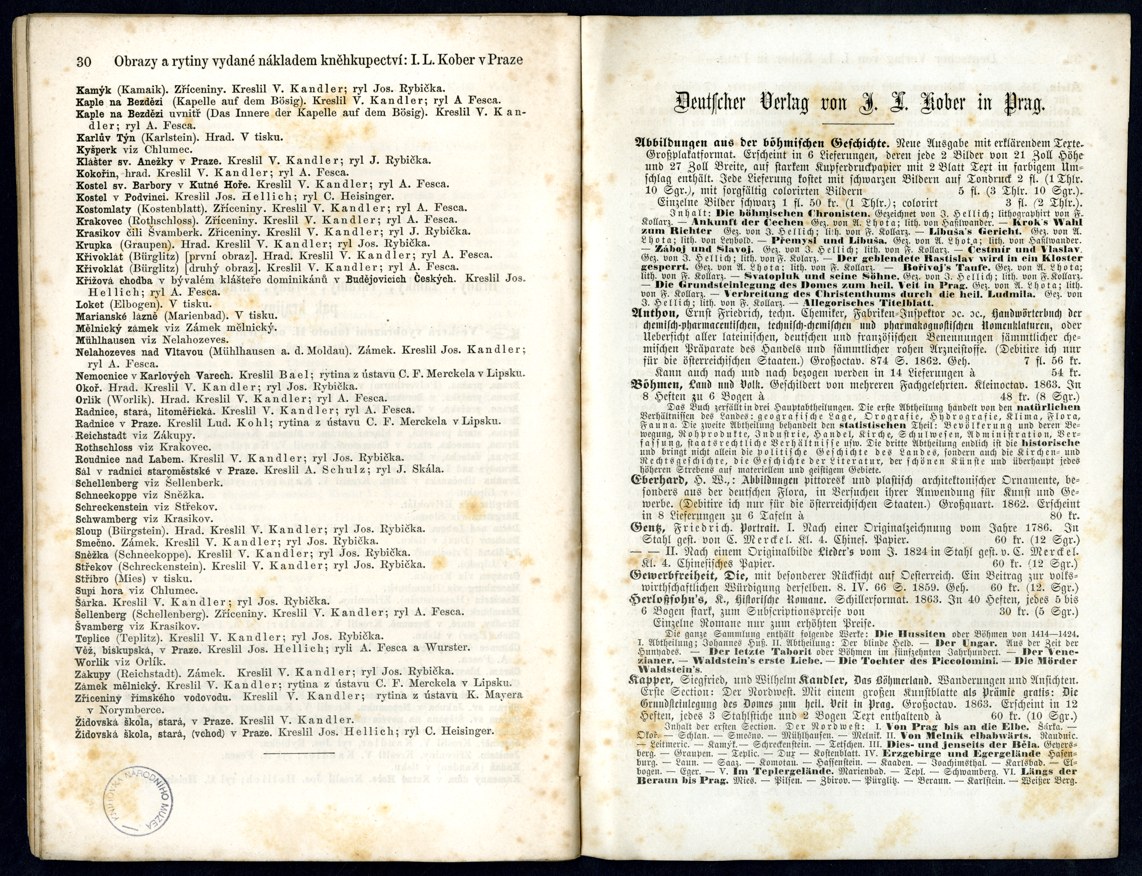 30 Obrazy a rytiny vydané nákladem kněhkupectví: I. L. Kober v Praze
Kamýk (Kamaik). Zříceniny. Kreslil V. Kandler; ryl Jos. Rybička.
Kaple na Bezdězi (Kapelle auf dem Bösig). Kreslil V. Kandler; ryl A Fesca.
Kaple na Bezdězi uvnitř (Das Innere der Kapelle auf dem Bösig). Kreslil V. Kan-
dler; ryl A. Fesca.
Karlův Týn (Karlstein). Hrad. V tisku.
Kyšperk viz Chlumec.
Klášter sv. Anežky v Praze. Kreslil V. Kandler; ryl J. Rybička.
Kokořín, hrad. Kreslil V. Kandler; ryl A. Fesca.
Kostel sv. Barbory v Kutné Hoře. Kreslil V. Kandler; ryl A. Fesca.
Kostel v Podvinci. Kreslil Jos. Hellich; ryl C. Heisinger.
Kostomlaty (Kostenblatt). Zříceniny. Kreslil V. Kandler; ryl A. Fesca.
Krakovec (Rothschloss). Zříceniny. Kreslil V. Kandler; ryl A. Fesca.
Krasikov čili Švamberk. Zříceniny. Kreslil V. Kandler; ryl J. Rybička.
Krupka (Graupen). Hrad. Kreslil V. Kandler; ryl Jos. Rybička.
Křivoklát (Bürglitz) [první obraz]. Hrad. Kreslil V. Kandler; ryl A. Fesca.
Křivoklát (Bürglitz) [druhý obraz]. Kreslil V. Kandler; ryl A. Fesca.
Křížová chodba v bývalém klášteře dominikánů v Budějovicích Českých. Kreslil Jos.
Hellich; ryl A. Fesca.
Loket (Elbogen). V tisku.
Marianské lázně (Marienbad). V tisku.
Mělnický zámek viz Zámek mělnický.
Mühlhausen viz Nelahozeves.
Nelahozeves nad Vltavou (Mühlhausen a. d. Moldau). Zámek. Kreslil Jos. Kandler;
ryl A. Fesca.
Nemocnice v Karlových Varech. Kreslil Bael; rytina z ústavu C. F. Merckela v Lipsku.
Okoř. Hrad. Kreslil V. Kandler; ryl Jos. Rybička.
Orlík (Worlik). Hrad. Kreslil V. Kandler; ryl A. Fesca.
Radnice, stará, litoměřická. Kreslil V. Kandler; ryl A. Fesca.
Radnice v Praze. Kreslil Lud. Kohl; rytina z ústavu C. F. Merckela v Lipsku.
Reichstadt viz Zákupy.
Rothschloss viz Krakovec.
Roudnice nad Labem. Kreslil V. Kandler; ryl Jos. Rybička.
Sál v radnici staroměstské v Praze. Kreslil A. Schulz; ryl J. Skála.
Schellenberg viz Šellenberk.
Schneekoppe viz Sněžka.
Schreckenstein viz Střekov.
Schwamberg viz Krasikov.
Sloup (Bürgstein). Hrad. Kreslil V. Kandler; ryl Jos. Rybička.
Smečno. Zámek. Kreslil V. Kandler; ryl Jos. Rybička.
Sněžka (Schneekoppe). Kreslil V. Kandler; ryl Jos. Rybička.
Střekov (Schreckenstein). Kreslil V. Kandler; ryl Jos. Rybička.
Stříbro (Mies) v tisku.
Supí hora viz Chlumec.
Šárka. Kreslil V. Kandler; ryl Jos. Rybička.
Šellenberg (Schellenberg). Zříceniny. Kreslil V. Kandler; ryl A. Fesca.
Švamberg viz Krasikov.
Teplice (Teplitz). Kreslil V. Kandler; ryl Jos. Rybička.
Věž, biskupská, v Praze. Kreslil Jos. Hellich; ryli A. Fesca a Wurster.
Worlik viz Orlík.
Zákupy (Reichstadt). Zámek. Kreslil V. Kandler; ryl Jos. Rybička.
Zámek mělnický. Kreslil V. Kandler; rytina z ústavu C. F. Merckela v Lipsku.
Zříceniny římského vodovodu. Kreslil V. Kandler; rytina z ústavu K. Mayera
v Norymberce.
Židovská škola, stará, v Praze. Kreslil V. Kandler.
Židovská škola, stará, (vchod) v Praze. Kreslil Jos. Hellich; ryl C. Heisinger.
KNIHOVNA NÁRODNÍHO MUZEA
Deutscher Verlag von J. L. Kober in Prag.
Abbildungen aus der böhmischen Geschichte. Neue Ausgabe mit erklärendem Texte.
Großplakatformat. Erscheint in 6 Lieferungen, deren jede 2 Bilder von 21 Zoll Höhe
und 27 Zoll Breite, auf starkem Kupferdruckpapier mit 2 Blatt Text in farbigem Um-
schlag enthält. Jede Lieferung kostet mit schwarzen Bildern auf Tondruck 2 fl. (1 Thlr.
10 Sgr.), mit sorgfältig colorirten Bildern 5 fl. (3 Thlr. 10 Sgr.).
Einzelne Bilder schwarz 1 fl. 50 kr. (1 Thlr.); colorirt 3 fl. (2 Thlr.).
Inhalt: Die böhmischen Chronisten. Gezeichnet von J. Hellich; lithographirt von F.
Kollarz. — Ankunft der Čechen Gez. von A. Lhota; lith. von Haßlwander. — Krok's Wahl
zum Richter Gez. von J. Hellich; lith. von F. Kollarz. — Libuša's Gericht. Gez. von A.
Lhota; lith. von Leybold. — Přemysl und Libuša. Gez. von A. Lhota; lith. von Haßlwander.
— Záboj und Slavoj. Gez. von J. Hellich; lith. von F. Kollarz. — Čestmir und Vlaslav.
Gez. von J. Hellich; lith. von F. Kolarz. — Der geblendete Rastislav wird in ein Kloster
gesperrt. Gez. von A. Lhota; lith. von F. Kollarz. — Bořivoj's Taufe. Gez. von A. Lhota;
lith. von F. Kollarz. — Svatopluk und seine Söhne. Gez. von J. Hellich; lith. von F. Kollarz.
— Die Grundsteinlegung des Domes zum heil. Veit in Prag. Gez. von A. Lhota; lith.
von F. Kollarz. — Verbreitung des Christenthums durch die heil. Ludmila. Gez. von
J. Hellich; lith. von F. Kollarz. — Allegorisches Titelblatt.
Anthon, Ernst Friedrich, techn. Chemiker, Fabriken-Inspektor ꝛc. ꝛc., Handwörterbuch der
chemisch-pharmaceutischen, technisch-chemischen und pharmakognostischen Nomenklaturen, oder
Uebersicht aller lateinischen, deutschen und französischen Benennungen sämmtlicher che-
mischen Präparate des Handels und sämmtlicher rohen Arzneistoffe. (Debitire ich nur
für die österreichischen Staaten.) Großoctav. 874 S. 1862. Geh. 7 fl. 56 kr.
Kann auch nach und nach bezogen werden in 14 Lieferungen à 54 kr.
Böhmen, Land und Volk. Geschildert von mehreren Fachgelehrten. Kleinoctav. 1863. In
8 Heften zu 6 Bogen à 48 kr. (8 Sgr.)
Das Buch zerfällt in drei Hauptabtheilungen. Die erste Abtheilung handelt von den natürlichen
Verhältnissen des Landes: geografische Lage, Orografie, Hydrografie, Klima, Flora,
Fauna. Die zweite Abtheilung behandelt den statistischen Theil: Bevölkerung und deren Be-
wegung, Rohprodukte, Industrie, Handel, Kirche, Schulwesen, Administration, Ver-
fassung, staatsrechtliche Verhältnisse usw. Die dritte Abtheilung endlich ist die historische
und bringt nicht allein die politische Geschichte des Landes, sondern auch die Kirchen- und
Rechtsgeschichte, die Geschichte der Literatur, der schönen Künste und überhaupt jedes
höheren Strebens auf materiellem und geistigem Gebiete.
Eberhard, H. W.,: Abbildungen pittoresk und plastisch architektonischer Ornamente, be-
sonders aus der deutschen Flora, in Versuchen ihrer Anwendung für Kunst und Ge-
werbe. (Debitire ich nur für die österreichischen Staaten.) Großquart. 1862. Erscheint
in 8 Lieferungen zu 6 Tafeln à 80 kr.
Gentz, Friedrich. Portrait. I. Nach einer Originalzeichnung vom Jahre 1786. In
Stahl gest. von C. Merckel. Kl. 4. Chines. Papier. 60 kr. (12 Sgr.)
— — II. Nach einem Originalbilde Lieder's vom J. 1824 in Stahl gest. v. C. Merckel.
Kl. 4. Chinesisches Papier. 60 kr. (12 Sgr.)
Gewerbfreiheit, Die, mit besonderer Rücksicht auf Oesterreich. Ein Beitrag zur volks-
wirthschaftlichen Würdigung derselben. 8. IV. 66 S. 1859. Geh. 60 kr. (12. Sgr.)
Herloßsohn's, K., Historische Romane. Schillerformat. 1863. In 40 Heften, jedes 5 bis
6 Bogen stark, zum Subscriptionspreise von 30 kr. (5 Sgr.)
Einzelne Romane nur zum erhöhten Preise.
Die ganze Sammlung enthält folgende Werke: Die Hussiten oder Böhmen von 1414—1424.
I. Abtheilung; Johannes Huß. II. Abtheilung: Der blinde Held. — Der Ungar. Aus der Zeit der
Hunyades. — Der letzte Taborit oder Böhmen im fünfzehnten Jahrhundert. — Der Vene-
zianer. — Waldstein's erste Liebe. — Die Tochter des Piccolomini. — Die Mörder
Waldstein's.
Kapper, Siegfried, und Wilhelm Kandler, Das Böhmerland. Wanderungen und Ansichten.
Erste Section: Der Nordwest. Mit einem großen Kunstblatte als Prämie gratis: Die
Grundsteinlegung des Domes zum heil. Veit in Prag. Großoctav. 1863. Erscheint in 12
Heften, jedes 3 Stahlstiche und 2 Bogen Text enthaltend à 60 kr. (10 Sgr.)
Inhalt der ersten Section. Der Nordwest: I. Von Prag bis an die Elbe. Šárka. —
Okoř. — Schlan. — Smečno. — Mühlhausen. — Melnik. II. Von Melnik elbabwärts. Raudnic.
— Leitmeric. — Kamýk. — Schreckenstein. — Tetschen. III. Dies- und jenseits der Běla. Geyers-
berg. — Graupen. — Teplic. — Dux — Kostenblatt. IV. Erzgebirge und Egergelände Hasen-
burg. — Laun. — Saaz. — Komotau. — Hassenstein. — Kaaden. — Joachimsthal. — Karlsbad. — El-
bogen. — Eger. — V. Im Teplergelände. Marienbad. — Tepl. — Schwamberg. VI. Längs der
Beraun bis Prag. Mies. — Pilsen. — Zbirow. — Pürglitz. — Beraun. — Karlstein. — Weißer Berg.